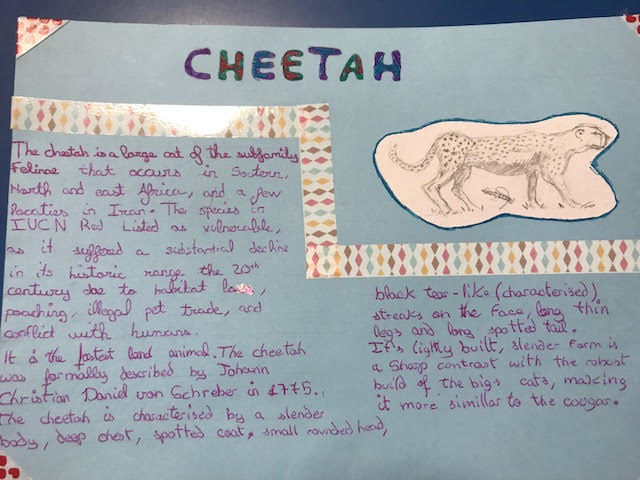 CHEETAH
The cheetah is a large cat of the subfamily
Felinae that occurs in Soutern,
North and east Africa, and a few
locaties in Iran. The species in
IUCN Red Listed as vulnerable,
as it suffered a substantial decline
in its historic range the 20th
century due to habitat
poaching, illegal pet trade, and
conflict with humans.
It is the fastest land animal. The cheetah
was formally described by Johann
Christian Daniel von Schreber in 1775.
The cheetah is characterised by a slender
body, deep chest, spotted coat, small rounded head,
black tear-like (characterised)
streaks on the face, long thin
legs and long spotted tail.
It's ligthly built, slender form is
a sharp contrast with the robust
build of the bigs cats, making
it more simillar to the cougar.